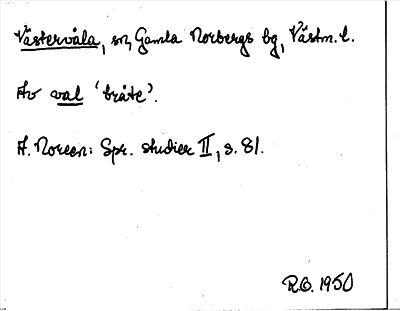 Västervåla, sn, Gamla Norbergs bg, Västm. l.
Av val 'bråte'.
A. Noreen: Spr. studier II, s. 81.
R.O. 1950